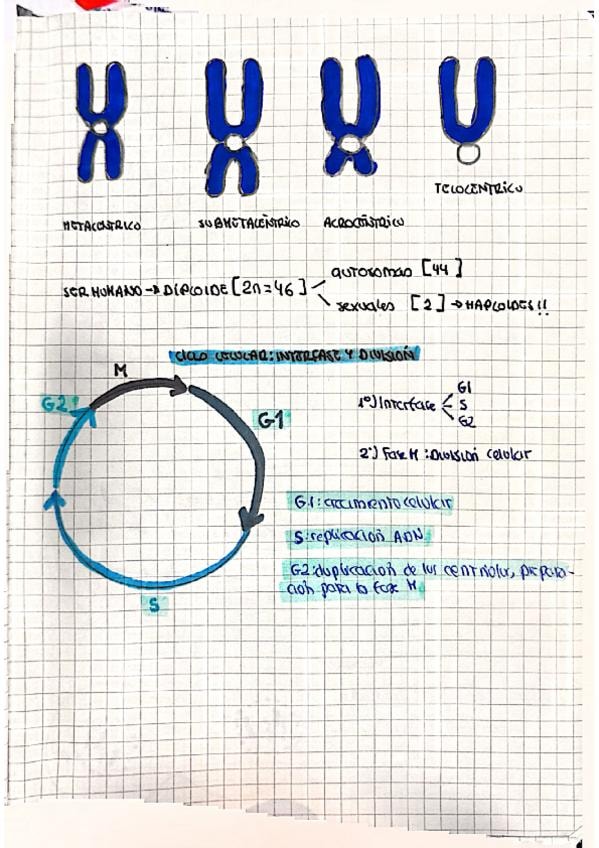 TELOCENTRICO
METACENTRICO SUBMETACENTRICO ACROCENTRICO
SER HUMANO → DIPLOIDE [2n=46] autosomas [44]
sexuales [2] → HAPLOIDES!!
CICLO CELULAR: INTERFASE Y DIVISIÓN
M
G2
G1
S
1º) Interfase G1
S
G2
2º) Fase M: División celular
G1: crecimiento celular
S: replicación ADN
G2: duplicación de los centriolos, prepara-
ción para la fase M.